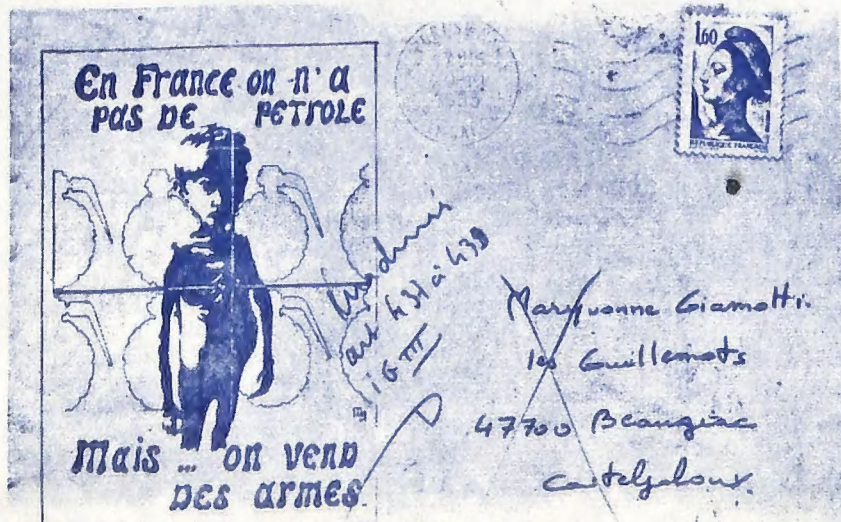 En France on n'a
pas de petrole
Mais ... on vend
des armes
1.60
REPUBLIQUE FRANÇAISE
art 431 à 439
Maryvonne Giamotti
les Guillemots
47700 Beauziac
Casteljaloux.